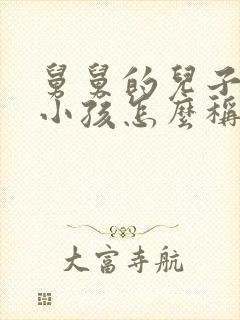 舅舅的兒子
小孩怎麼稱
大富寺航